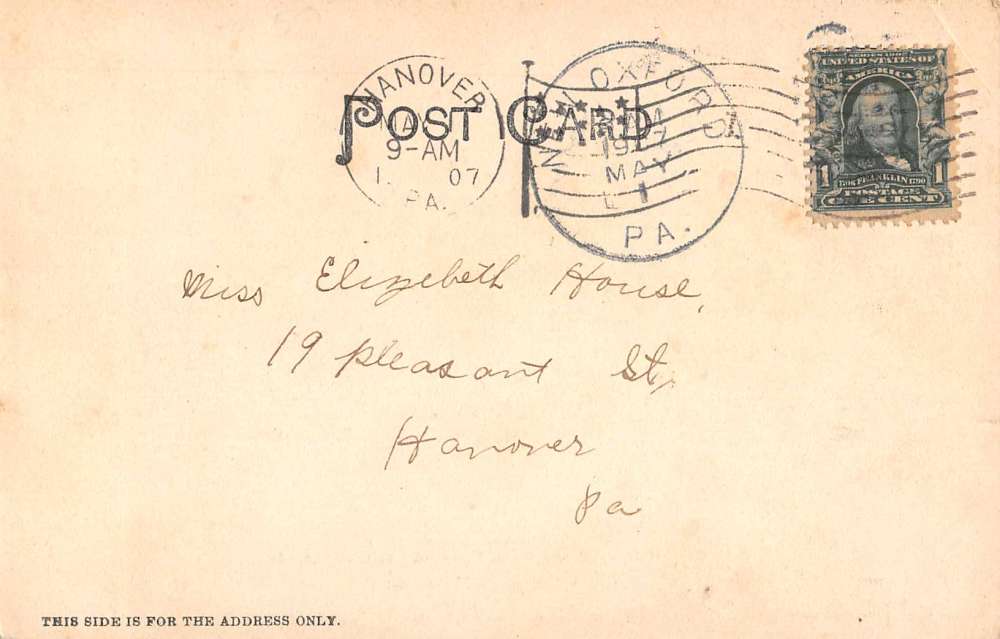 HANOVER
9-AM
1 07
PA.
POST CARD
NEW OXFORD
1907
MAY
1
PA.
SERIES 1902
UNITED STATES OF
AMERICA
1 1706 FRANKLIN 1790 1
POSTAGE
ONE CENT
Miss Elizebeth House,
19 pleasant St,
Hanover
Pa
THIS SIDE IS FOR THE ADDRESS ONLY.